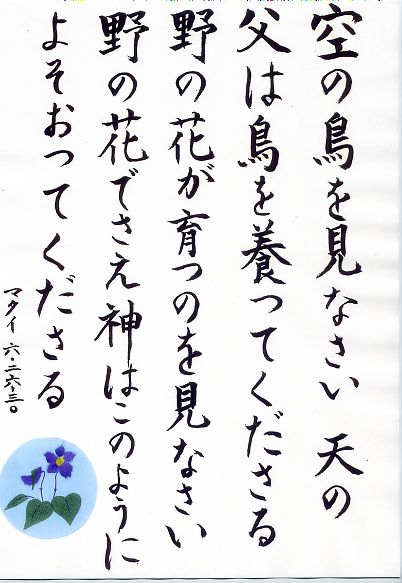 空の鳥を見なさい　天の
父は鳥を養ってくださる
野の花が育つのを見なさい
野の花でさえ神はこのように
よそおってくださる
マタイ 六・二六・三〇